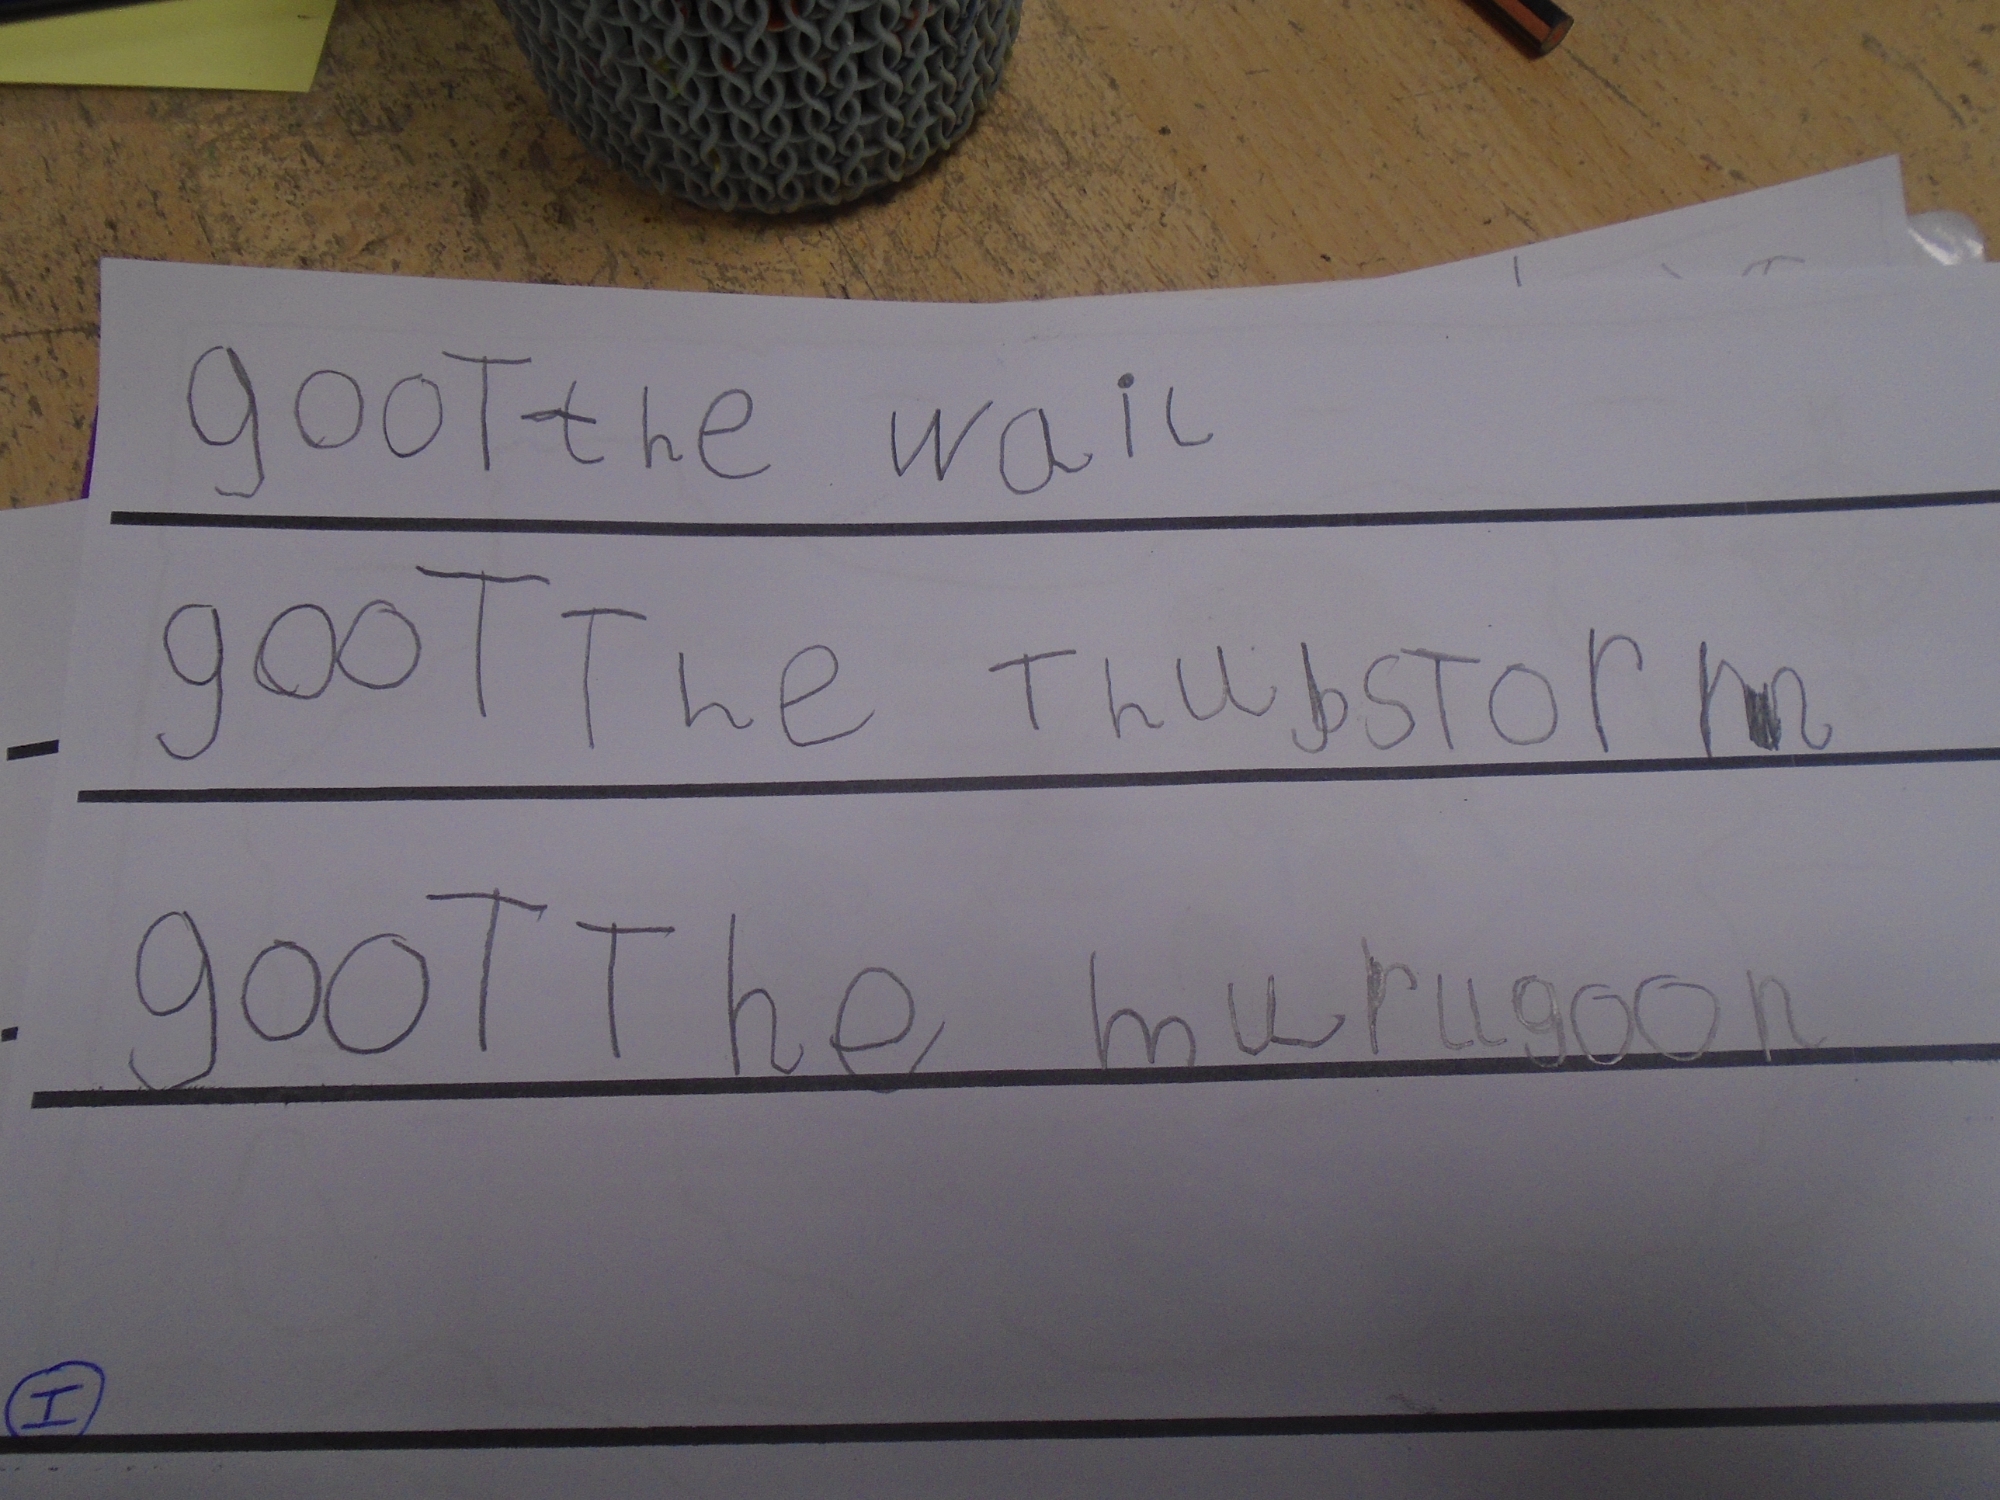 gooT the wail
gooT The ThubsTorm
gooT The hurugoon
I